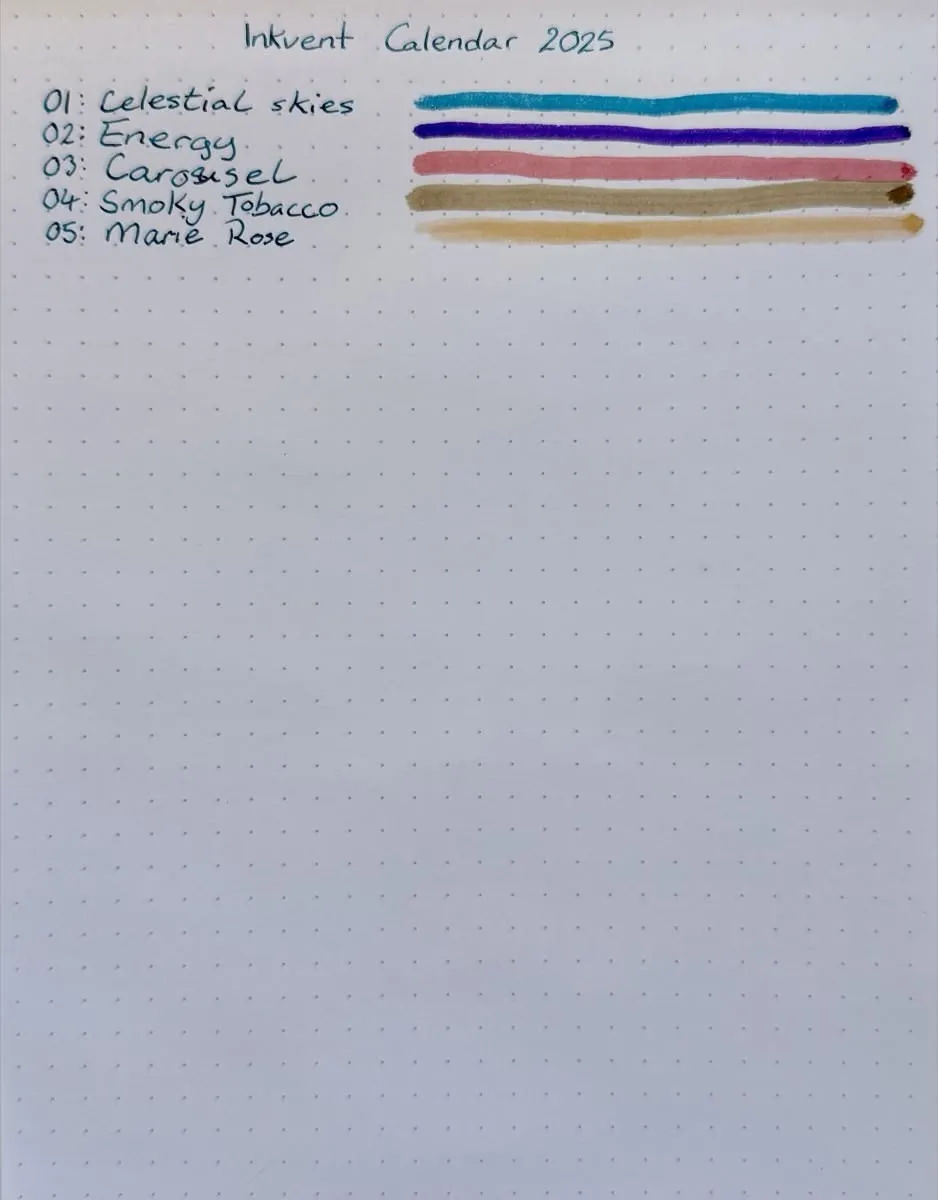 Inkvent Calendar 2025
01: Celestial skies
02: Energy
03: Carousel
04: Smoky Tobacco
05: Marie Rose